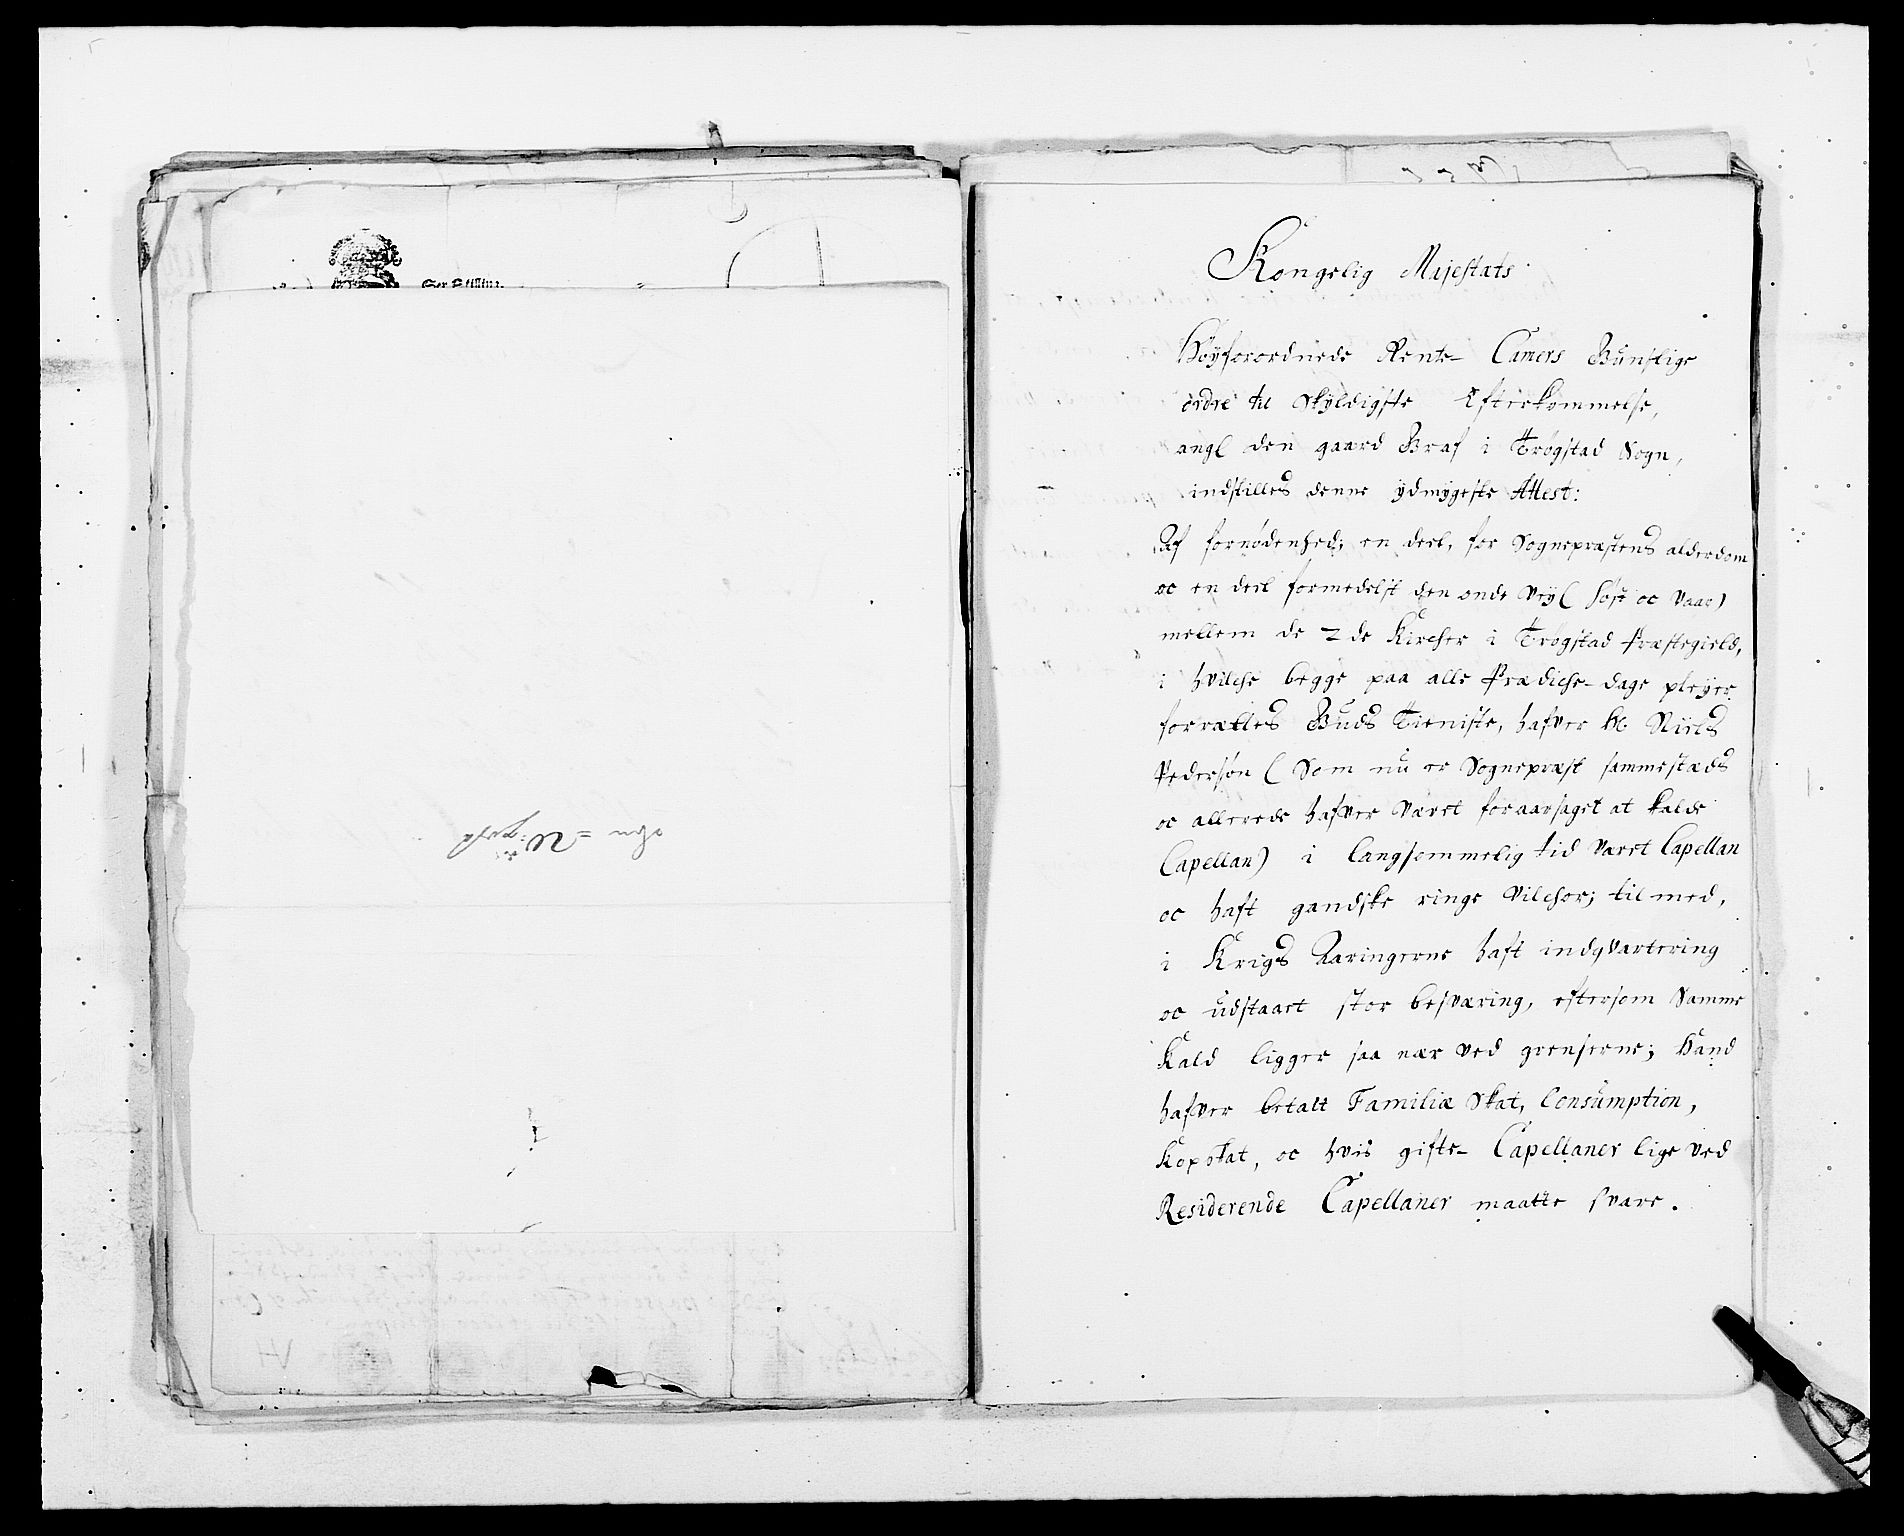 Kongelig Majestæts
Høyforordnede Rente- Camers Gunstige
ordre til skyldigste Efterkommelse,
angl den gaard Graf i Trøgstad Sogn,
indstilles denne ydmygeste Attest:
Af fornødenhed, en deel, for Sognepræstens alderdom
oc en deel formedelst den onde Vey ( høst oc Vaar)
mellem de 2de Kircher i Trøgstad Præstegield,
i hvilche begge paa alle Prædiche-dage pleyer
forrættes Guds Tieniste, hafver Hr Niels
Pedersøn ( Som nu er Sognepræst sammestæds
oc allerede hafver været foraarsaget at kalde
Capellan) i langsommelig tid været Capellan
oc haft gandske ringe Vilchor; til med,
i Krigs Aaringerne haft indqvartering
oc udstaaet stor besværing, eftersom Samme
Kald ligger saa nær ved grenserne; Hand
hafver betalt Familiæ Skat, Consumption,
Kopskat, oc hvis gifte- Capellaner lige ved
Residerende Capellaner maatte svare.